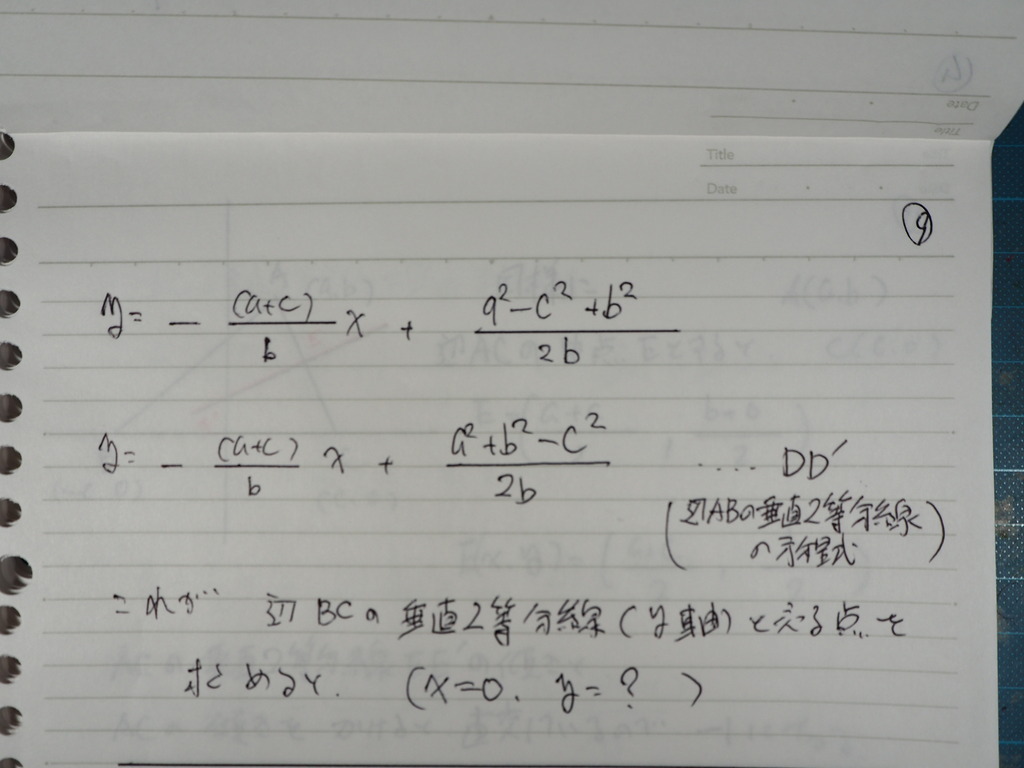 Title
Date
④
y = - (a+c)/b x + (a²-c²+b²)/2b
y = - (a+c)/b x + (a²+b²-c²)/2b ‥‥ DD′
(辺ABの垂直2等分線
の方程式)
これが 辺BCの垂直2等分線(y軸)と交る点を
求めると. (x=0. y=? )